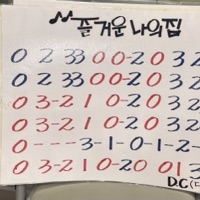 즐거운 나의집
0 2 33 0 0-2 0 3 2
0 2 33 0 0-2 0 3 2
0 3-2 1 0-2 0 3 2
0 3-2 1 0-2 0 3 2
0 - - - 3-1-0-1-2-
0 3-2 1 0-20 013
D.C